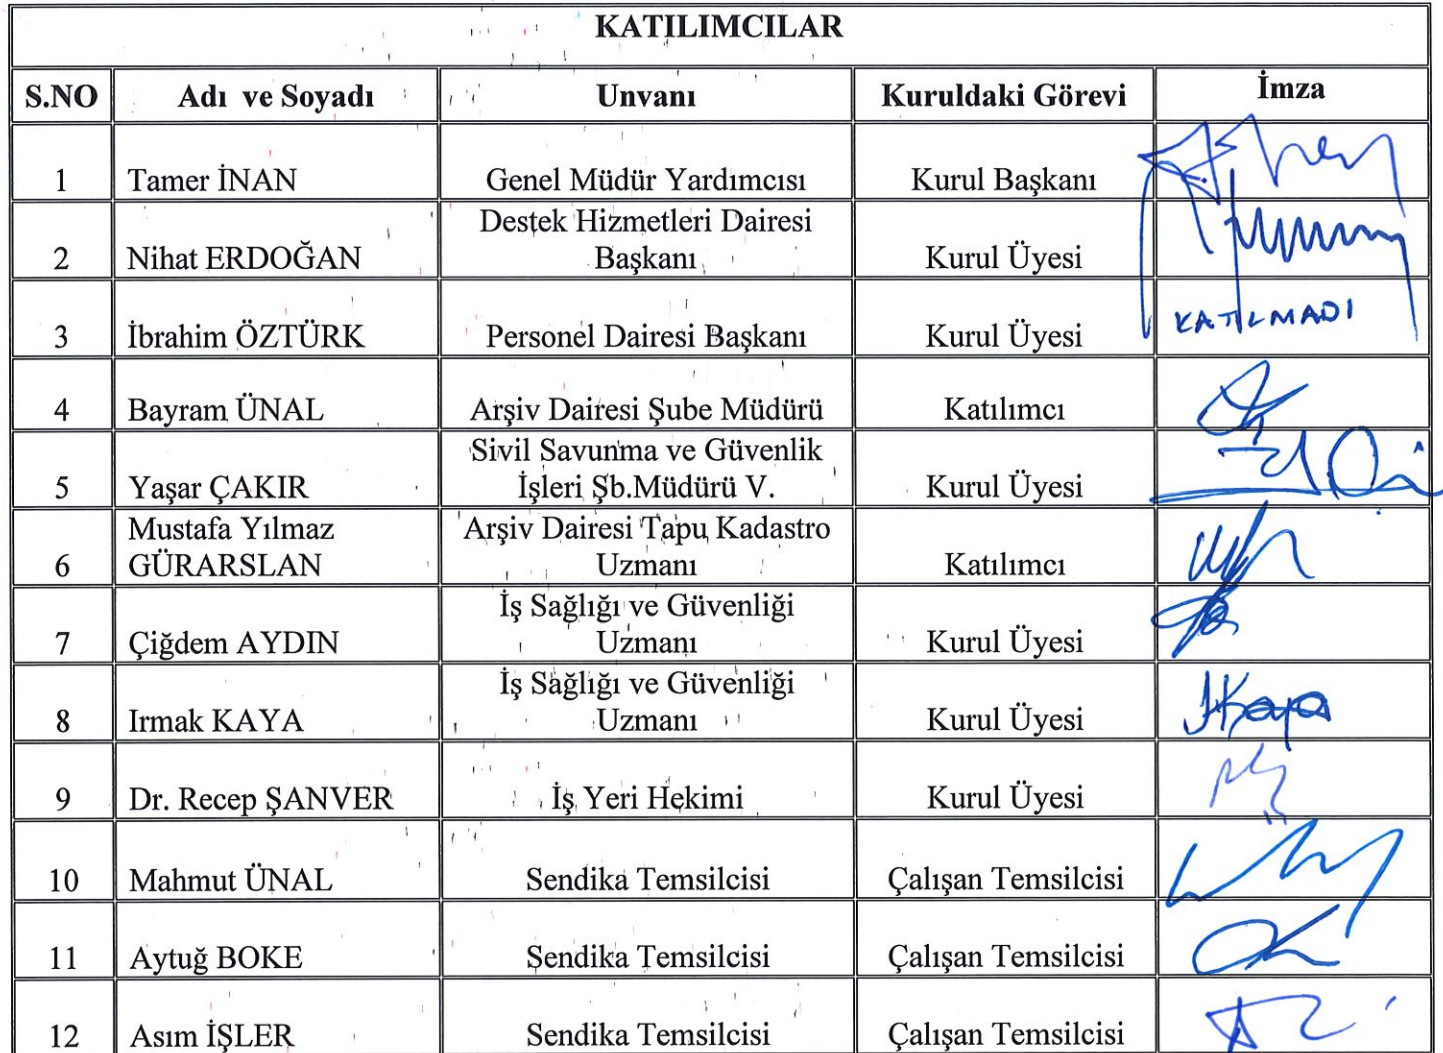 KATILIMCILAR
S.NO Adı ve Soyadı Unvanı Kuruldaki Görevi İmza
1 Tamer İNAN Genel Müdür Yardımcısı Kurul Başkanı
Destek Hizmetleri Dairesi
2 Nihat ERDOĞAN Başkanı Kurul Üyesi
3 İbrahim ÖZTÜRK Personel Dairesi Başkanı Kurul Üyesi KATILMADI
4 Bayram ÜNAL Arşiv Dairesi Şube Müdürü Katılımcı
Sivil Savunma ve Güvenlik
5 Yaşar ÇAKIR İşleri Şb.Müdürü V. Kurul Üyesi
Mustafa Yılmaz Arşiv Dairesi Tapu Kadastro
6 GÜRARSLAN Uzmanı Katılımcı
İş Sağlığı ve Güvenliği
7 Çiğdem AYDIN Uzmanı Kurul Üyesi
İş Sağlığı ve Güvenliği
8 Irmak KAYA Uzmanı Kurul Üyesi
9 Dr. Recep ŞANVER İş Yeri Hekimi Kurul Üyesi
10 Mahmut ÜNAL Sendika Temsilcisi Çalışan Temsilcisi
11 Aytuğ BOKE Sendika Temsilcisi Çalışan Temsilcisi
12 Asım İŞLER Sendika Temsilcisi Çalışan Temsilcisi